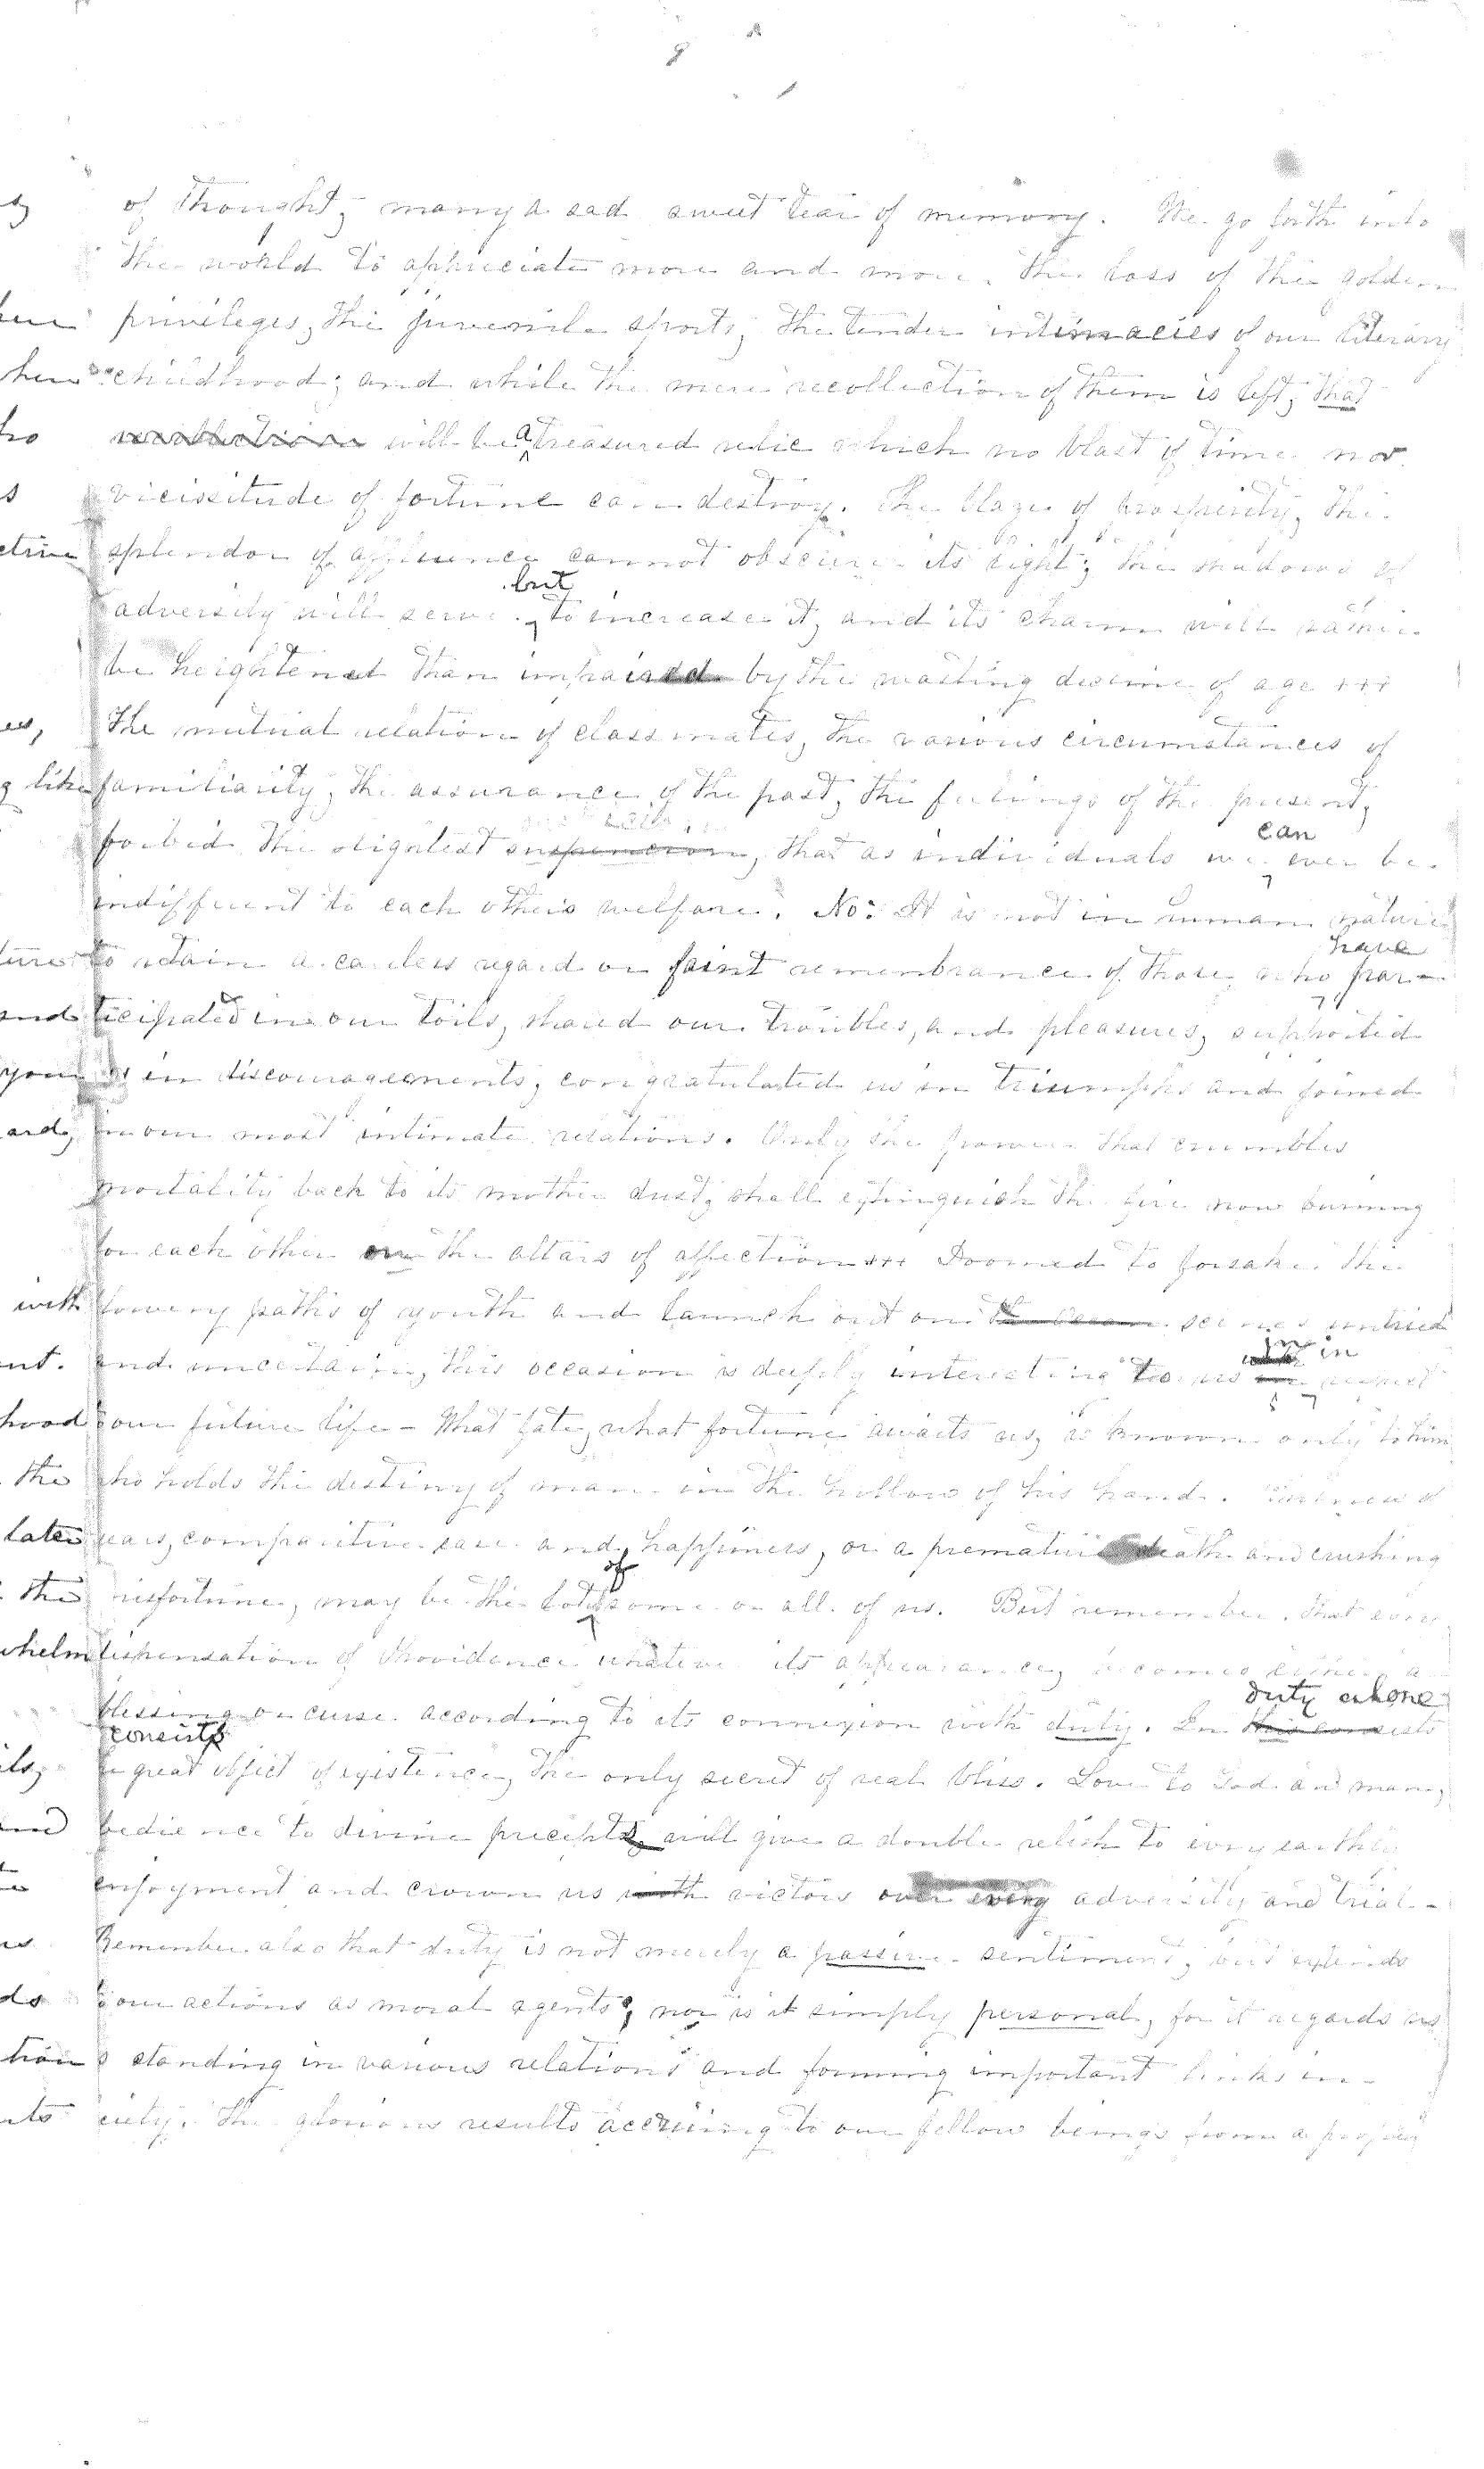 of thought, many a sad sweet tear of memory. We go forth into
the world to appreciate more and more, the loss of the golden
privileges, the juvenile sports, the tender intimacies of our literary
childhood; and while the mere recollection of them is left, that
recollection will be a treasured relic which no blast of time nor
vicissitude of fortune can destroy. The blaze of prosperity, the
splendor of affluence cannot obscure its light; the shadows of
adversity will serve but to increase it, and its charm will rather
be heightened than impaired by the wasting decline of age +++
The mutual relation of classmates, the various circumstances of
familiarity, the assurance of the past, the feelings of the present,
forbid the slightest suspicion, that as individuals we can ever be
indifferent to each other's welfare. No: It is not in human nature
to retain a careless regard or faint remembrance of those who have par-
ticipated in our toils, shared our troubles, and pleasures, supported
us in discouragements, congratulated us in triumphs and joined
in our most intimate relations. Only the power that crumbles
mortality back to its mother dust, shall extinguish the fire now burning
for each other on the altars of affection +++ Doomed to forsake the
flowery paths of youth and launch out on the ocean scenes untried
and uncertain, this occasion is deeply interesting to us in respect
to our future life - What fate, what fortune awaits us, is known only to him
who holds the destiny of man in the hollow of his hand.
years, comparative ease and happiness, or a premature death and crushing
misfortune, may be the lot of some or all of us. But remember, that every
dispensation of Providence whatever its appearance, becomes either a
blessing or curse according to its connexion with duty. In duty alone this consists
consists
the great object of existence, the only secret of real bliss. Love to God and man,
obedience to divine precepts, will give a double relish to every earthly
enjoyment and crown us with victors over every adversity and trial -
Remember also that duty is not merely a passive sentiment, but extends
to our actions as moral agents; nor is it simply personal, for it regards us
as standing in various relations and forming important links in
society. The glorious results accruing to our fellow beings from a proper